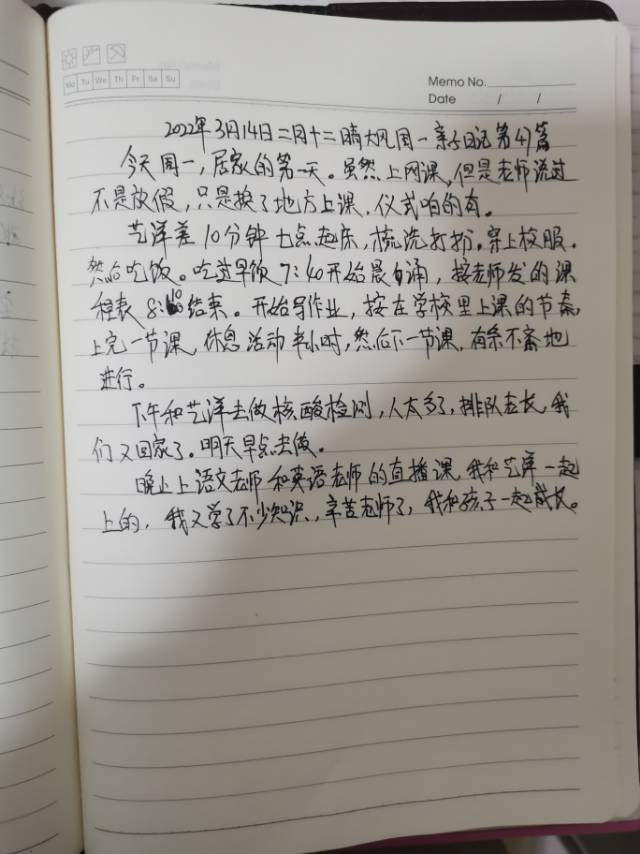 Mo Tu We Th Fr Sa Su
Memo No.
Date / /
2022年3月14日二月十二晴大风周一亲子日记第47篇
今天周一,居家的第一天。虽然上网课,但是老师说过
不是放假,只是换了地方上课,仪式咱的有。
艺洋差10分钟七点起床,梳洗打扮。穿上校服。
然后吃饭。吃过早饭7:40开始晨诵,按老师发的课
程表8:10结束。开始写作业,按在学校里上课的节奏,
上完一节课,休息活动半小时,然后下一节课,有条不紊地
进行。
下午和艺洋去做核酸检测,人太多了,排队老长,我
们又回家了。明天早点去做。
晚上上语文老师和英语老师的直播课,我和艺洋一起
上的,我又学了不少知识,辛苦老师了,我和孩子一起成长。